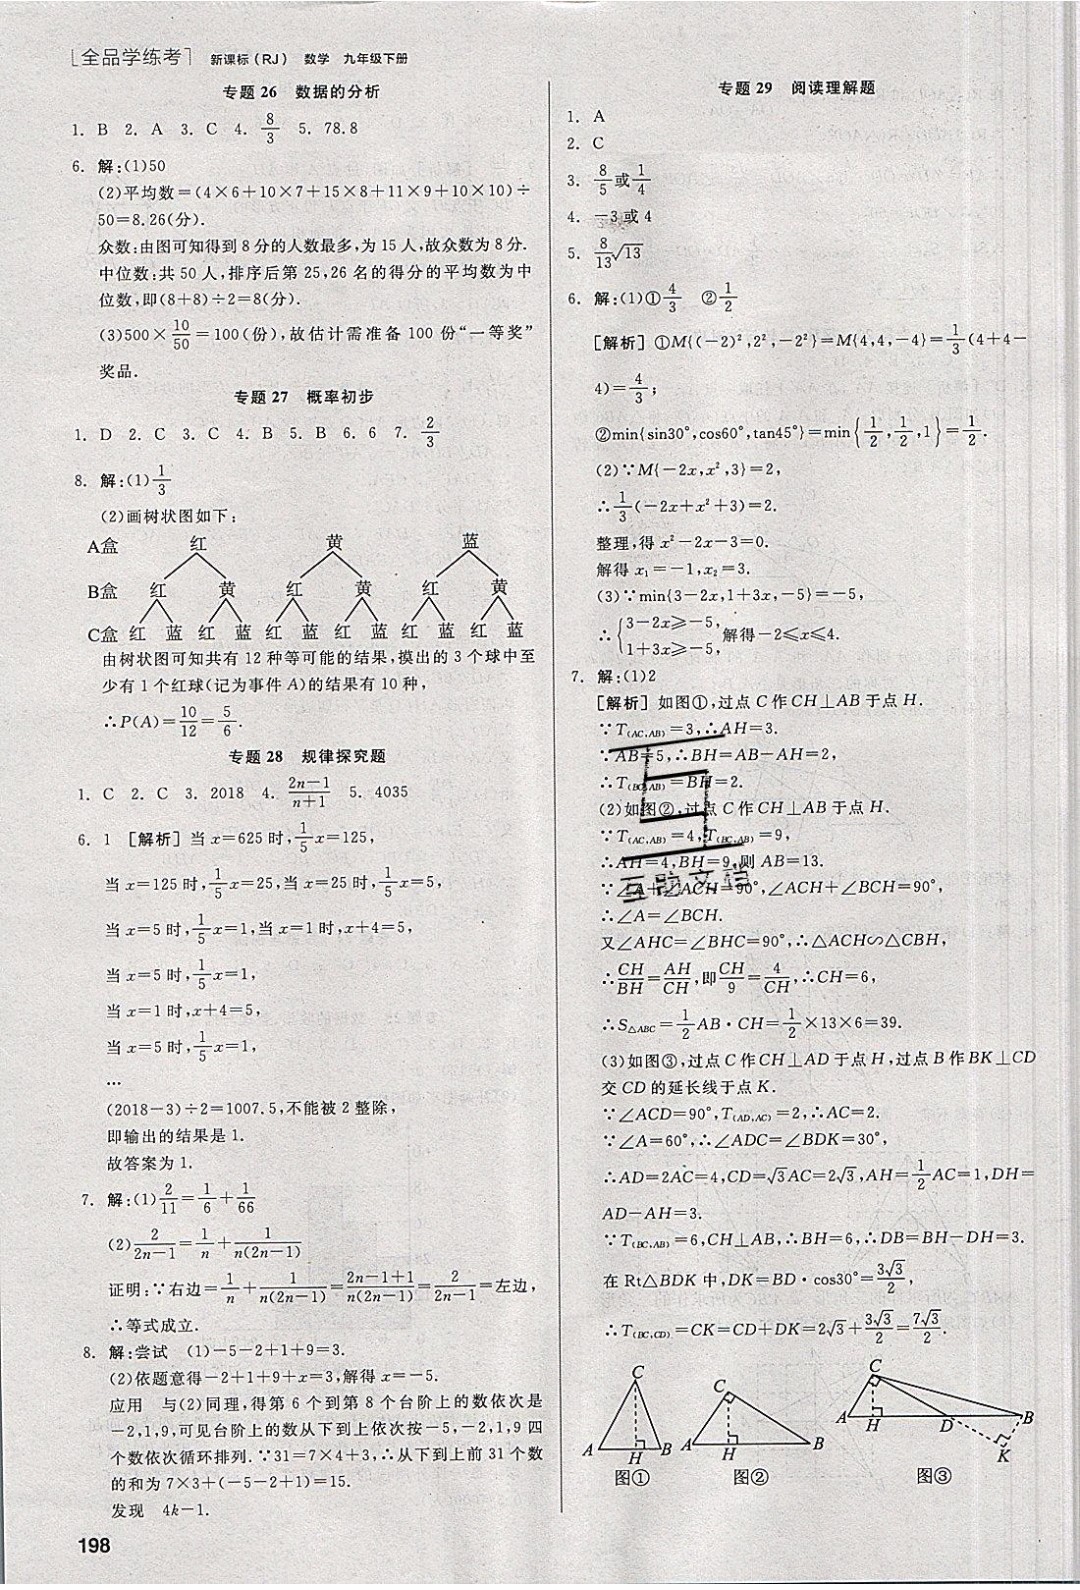 [全品学练考] 新课标(RJ) 数学 九年级下册
专题26 数据的分析
1. B 2. A 3. C 4. 8/3 5. 78.8
6. 解:(1)50
(2)平均数=(4×6+10×7+15×8+11×9+10×10)÷
50=8.26(分).
众数:由图可知得到8分的人数最多,为15人,故众数为8分.
中位数:共50人,排序后第25,26名的得分的平均数为中
位数,即(8+8)÷2=8(分).
(3)500×10/50=100(份),故估计需准备100份“一等奖”
奖品.
专题27 概率初步
1. D 2. C 3. C 4. B 5. B 6. 6 7. 2/3
8. 解:(1)1/3
(2)画树状图如下:
A盒 红 黄 蓝
B盒 红 黄 红 黄 红 黄
C盒 红 蓝 红 蓝 红 蓝 红 蓝 红 蓝 红 蓝
由树状图可知共有12种等可能的结果,摸出的3个球中至
少有1个红球(记为事件A)的结果有10种,
∴P(A)=10/12=5/6.
专题28 规律探究题
1. C 2. C 3. 2018 4. (2n-1)/(n+1) 5. 4035
6. 1 [解析] 当x=625时,1/5x=125,
当x=125时,1/5x=25,当x=25时,1/5x=5,
当x=5时,1/5x=1,当x=1时,x+4=5,
当x=5时,1/5x=1,
当x=1时,x+4=5,
当x=5时,1/5x=1,
…
(2018-3)÷2=1007.5,不能被2整除,
即输出的结果是1.
故答案为1.
7. 解:(1)2/11=1/6+1/66
(2)2/(2n-1)=1/n+1/(n(2n-1))
证明:∵右边=1/n+1/(n(2n-1))=(2n-1+1)/(n(2n-1))=2/(2n-1)=左边,
∴等式成立.
8. 解:尝试 (1)-5-2+1+9=3.
(2)依题意得-2+1+9+x=3,解得x=-5.
应用 与(2)同理,得第6个到第8个台阶上的数依次是
-2,1,9,可见台阶上的数从下到上依次按-5,-2,1,9四
个数依次循环排列.∵31=7×4+3,∴从下到上前31个数
的和为7×3+(-5-2+1)=15.
发现 4k-1.
198
专题29 阅读理解题
1. A
2. C
3. 8/5或1/4
4. -3或4
5. 8/13√13
6. 解:(1)①4/3 ②1/2
[解析] ①M{(-2)²,2²,-2²}=M{4,4,-4}=1/3(4+4-
4)=4/3;
②min{sin30°,cos60°,tan45°}=min{1/2,1/2,1}=1/2.
(2)∵M{-2x,x²,3}=2,
∴1/3(-2x+x²+3)=2.
整理,得x²-2x-3=0.
解得x₁=-1,x₂=3.
(3)∵min{3-2x,1+3x,-5}=-5,
∴{3-2x≥-5,
1+3x≥-5, 解得-2≤x≤4.
7. 解:(1)2
[解析] 如图①,过点C作CH⊥AB于点H.
∵T(AC,AB)=3,∴AH=3.
∵AB=5,∴BH=AB-AH=2,
∴T(BC,AB)=BH=2.
(2)如图②,过点C作CH⊥AB于点H.
∵T(AC,AB)=4,T(BC,AB)=9,
∴AH=4,BH=9,则AB=13.
∵∠A+∠ACH=90°,∠ACH+∠BCH=90°,
∴∠A=∠BCH.
又∠AHC=∠BHC=90°,∴△ACH∽△CBH,
∴CH/BH=AH/CH,即CH/9=4/CH,∴CH=6,
∴S△ABC=1/2AB·CH=1/2×13×6=39.
(3)如图③,过点C作CH⊥AD于点H,过点B作BK⊥CD
交CD的延长线于点K.
∵∠ACD=90°,T(AD,AC)=2,∴AC=2.
∵∠A=60°,∴∠ADC=∠BDK=30°,
∴AD=2AC=4,CD=√3AC=2√3,AH=1/2AC=1,DH=
AD-AH=3.
∵T(BC,AB)=6,CH⊥AB,∴BH=6,∴DB=BH-DH=3.
在Rt△BDK中,DK=BD·cos30°=3√3/2,
∴T(BC,CD)=CK=CD+DK=2√3+3√3/2=7√3/2.
C A H B 图①
C A H B 图②
C A H D B K 图③